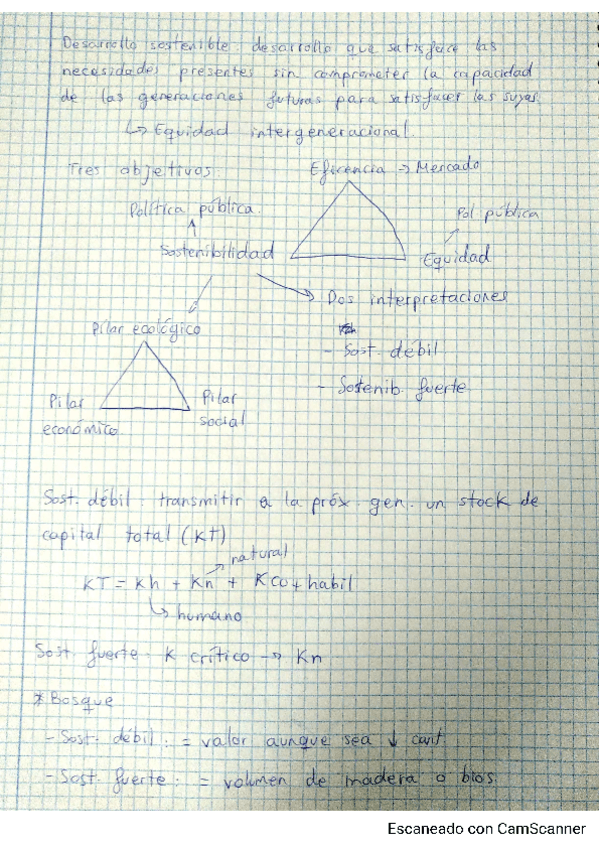 Desarrollo sostenible: desarrollo que satisface las
necesidades presentes sin comprometer la capacidad
de las generaciones futuras para satisfacer las suyas.
↳ Equidad intergeneracional.
Tres objetivos:
Eficiencia → Mercado
Política pública.
Pol pública
Sostenibilidad
Equidad
Dos interpretaciones
Pilar ecológico
- Sost. débil
- Sostenib. fuerte
Pilar económico.
Pilar social
Sost. débil: transmitir a la próx. gen. un stock de
capital total (KT)
natural
KT = Kh + Kn + Kco + habil
↳ humano
Sost. fuerte - K crítico → Kn
* Bosque
- Sost. débil: = valor aunque sea ↓ cant
- Sost. fuerte: = volumen de madera o bios.
Escaneado con CamScanner